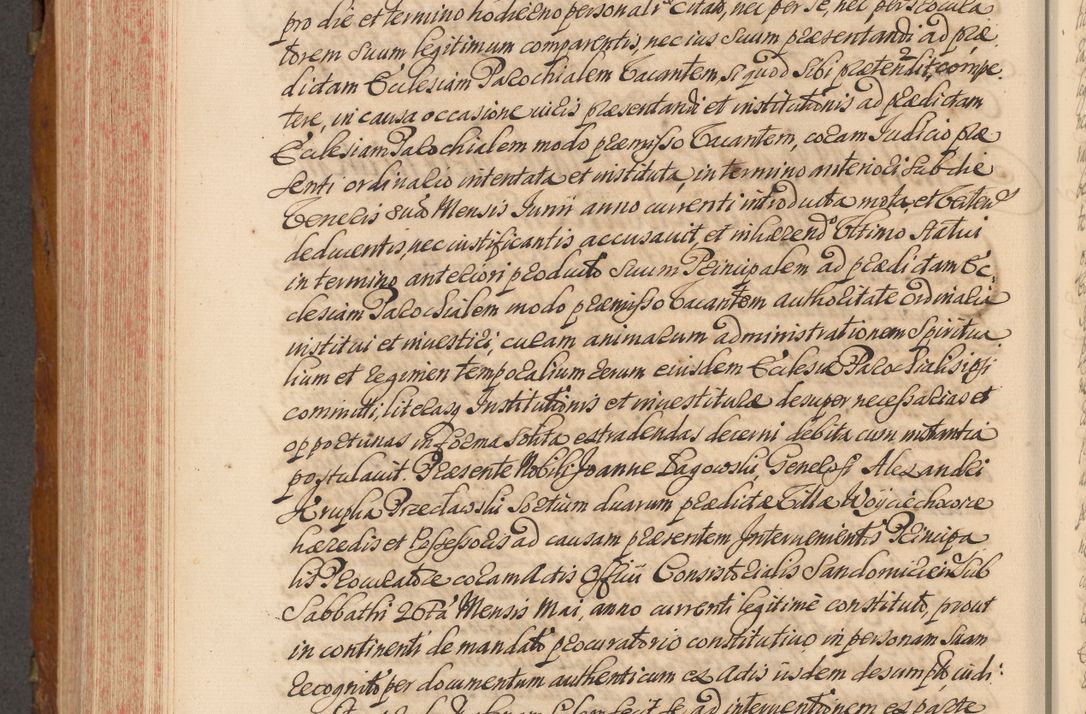 pro die et termino hodierno personalr Citati, nec per se, nec per Procura
torem suum legitimum comparentis, nec ius suum præsentandi ad præ
dictam Ecclesiam Parochialem Vacantem si quod sibi prætendit, compe
tere, in causa occasione iuris præsentandi et institutionis ad prædictam
Ecclesiam Parochialem modo præmisso Vacantem, coram Iudicio præ
senti ordinario intentata et instituta, in termino anteriori sub die
Veneris 8va Mensis Junii anno currenti introducta mota, et Terten
deducentis, nec iustificantis accusavit, et inhærendo Vltimo Statui
in termino anteriori producto Suum Principalem ad prædictam Ec
clesiam Parochialem modo præmisso Vacantem authoritate Ordinaria
institui et investiri, curam animarum administrationem Spiritua
lium et regimen temporalium rerum eiusdem Ecclesiæ Parochialis ipsi
committi, literasq Institutionis et investituræ desuper necessarias et
opportunas in forma solita extradendas decerni debita cum instantia
postulavit. Præsente Nobili Joanne Bagowski, Generosi Alexandri
Krupka Przecławski Sortium duarum prædictæ Villæ Woyciechowice
hæredis et Possessoris ad causam præsentem Intervenientis Principa
lis Procuratore coram Actis Officii Consistorialis Sandomirien Sub
Sabbathi 26ta Mensis Mai, anno currenti legitime constituto, prout
in continenti de mandato procuratorio constitutivo in personam suam
recognito per documentum authenticum ex Actis iisdem desumpto, iudi:
se, ad interventionem ex parte